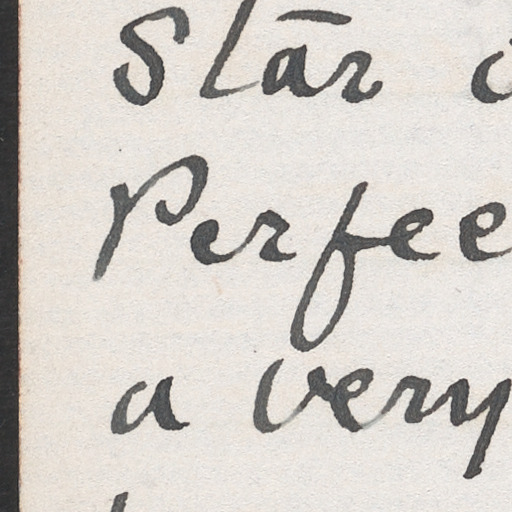 Star
Perfec
a very